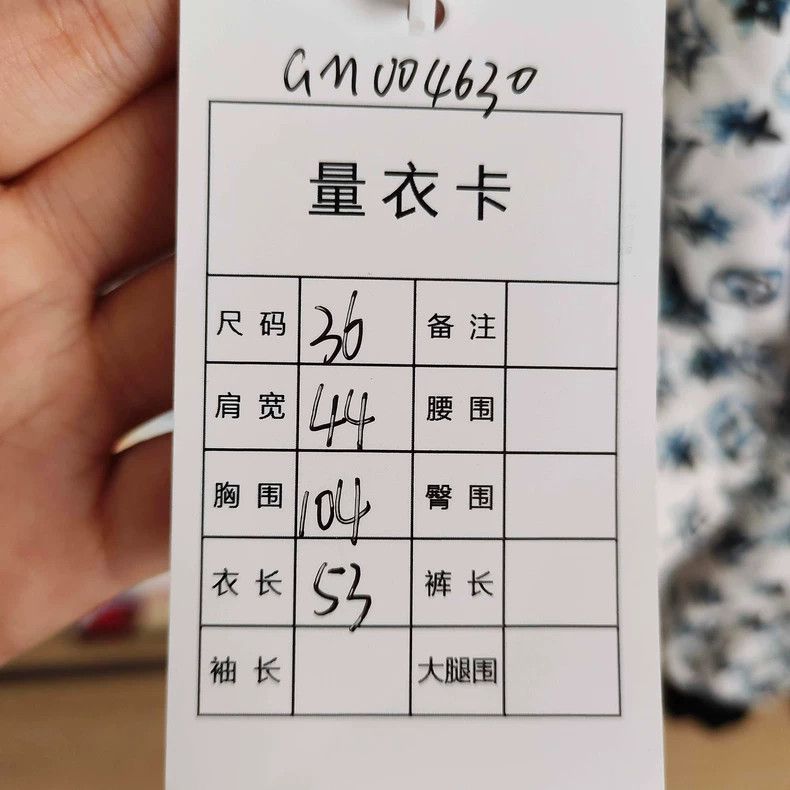 GN004630
量衣卡
尺码 36 备注
肩宽 44 腰围
胸围 104 臀围
衣长 53 裤长
袖长 大腿围